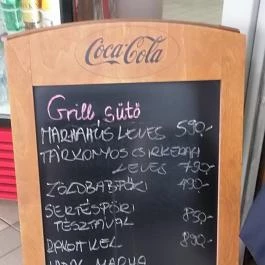 Coca-Cola
Grill, sütő
MARHAHÚS LEVES 590,-
TÁRKONYOS CSIRKERAGU
LEVES 790,-
ZÖLDBABFŐZ 490,-
SERTÉSPÖRI
TÉSZTÁVAL 890,-
890,-
MARHA